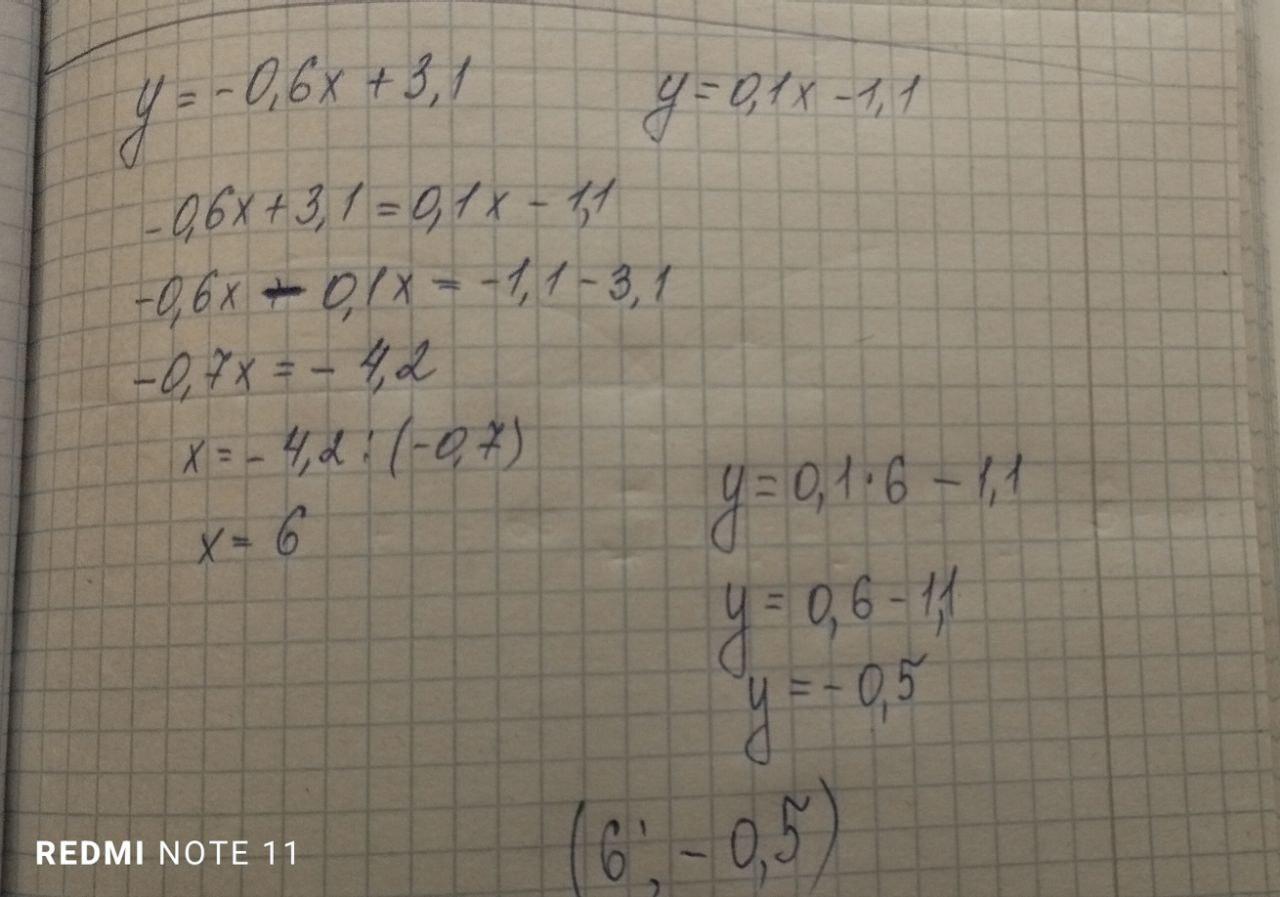 y = -0,6x + 3,1
y = 0,1x - 1,1
-0,6x + 3,1 = 0,1x - 1,1
-0,6x - 0,1x = -1,1 - 3,1
-0,7x = - 4,2
x = - 4,2 : (-0,7)
x = 6
y = 0,1 · 6 - 1,1
y = 0,6 - 1,1
y = - 0,5
(6 ; - 0,5)
REDMI NOTE 11